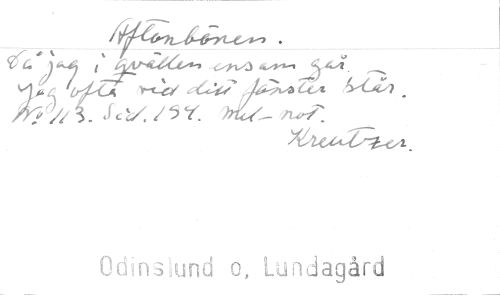 Aftonbönen.
Då jag i qvällen ensam går
jag ofta vid ditt fönster står.
No 113. Sid. 194. mel- not.
Kreutzer.
Odinslund o, Lundagård